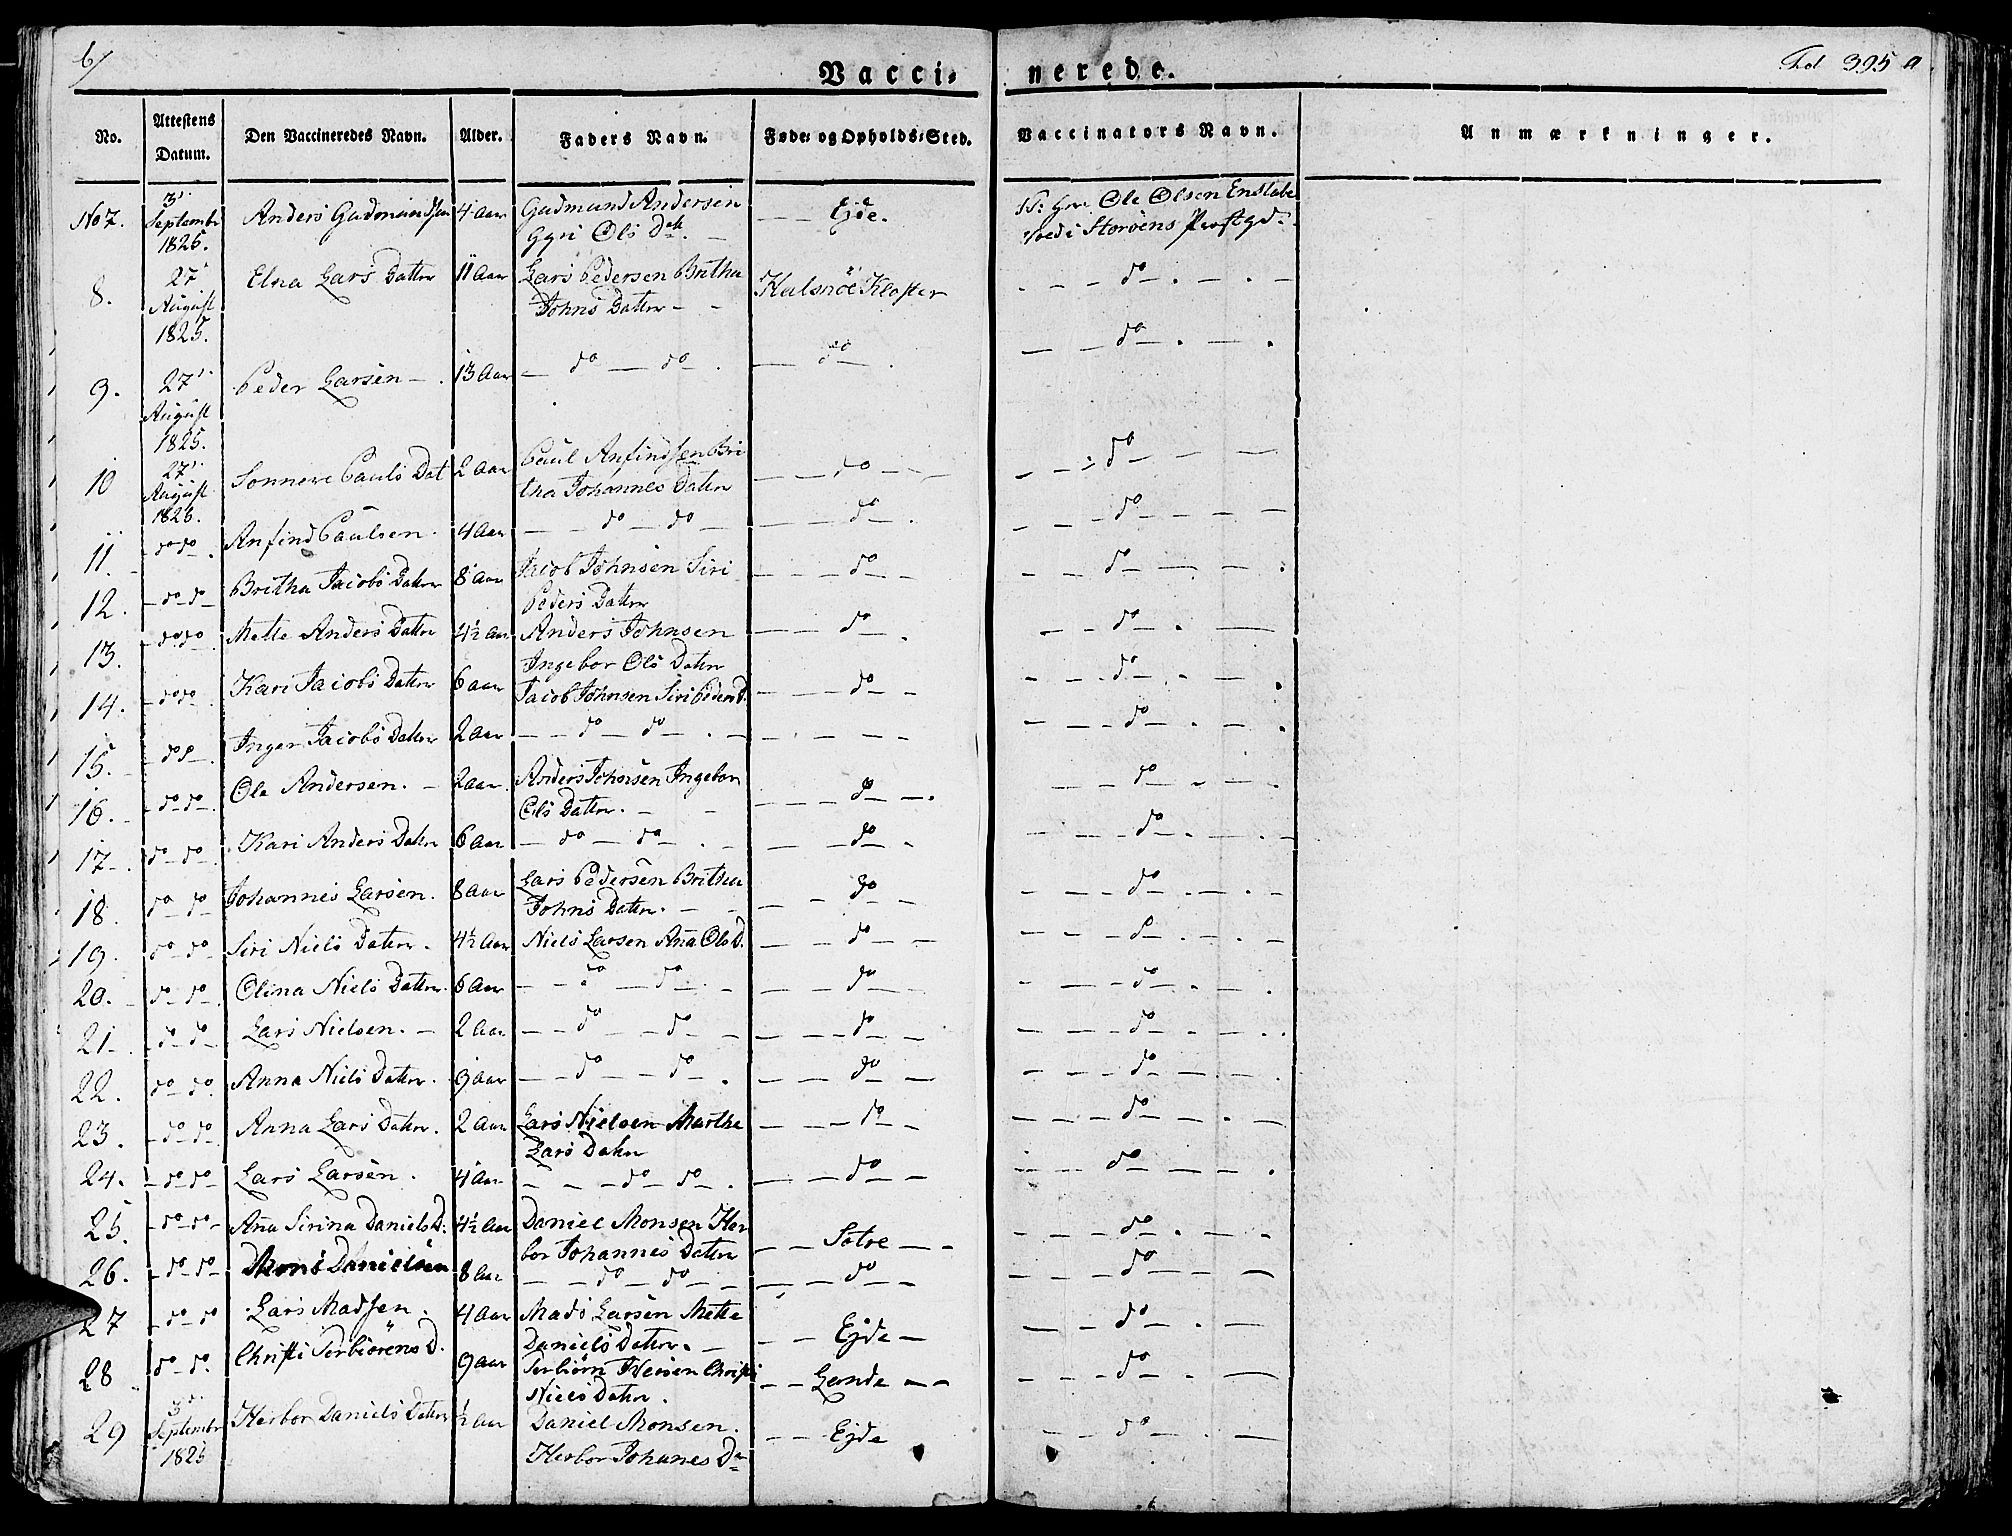 6/
Vacci- nerede.
Fol 395 a
No. Attestens Datum. Den Vaccineredes Navn. Alder. Faders Navn. Føde- og Opholds-Sted. Vaccinators Navn. Anmærkninger.
No 7. 3' Septembr 1825. Anders Gudmundsen 4 Aar Gudmund Andersen Ejde. Ole Olsen
Ols Dtr. i Storöens Prostgd.
8. 27' August 1825. Elna Lars Datter 11 Aar Lars Pedersen Britha Halsnöe Kloster — — do — . — . —
Johns Datter — —
9. 27' August 1825. Peder Larsen — . 13 Aar — do — do — . — do — . — — do — . — .
10 27' August 1825. Sonneve Pauls Dat 2 Aar Paul Anfindsen Bri — — do — — — — do — — —
tha Johannes Datter
11. — do do . Anfind Paulsen . 4 Aar — — do — do — — — do — . — — — do — — — —
12. — do — do — Britha Jacobs Datter 8 Aar Jacob Johnsen Siri — — — do — — — — do — — .
Peders Datter
13. — do do — Mette Anders Datter 4½ Aar Anders Johnsen — — do — . — — do — . —
Ingebor Ols Datter
14. — do do . Kari Jacobs Datter 6 Aar Jacob Johnsen Siri Peders D. — — — do — — — — — do — . — .
15. — do do . Inger Jacobs Datter 2 Aar — — do — do — . — — . — — — — — — do — . — .
16. — do do . Ole Andersen . — 2 Aar Anders Johnsen Ingebor — — — do — — . — — — do — . — .
Ols Datter . — —
17 — . do — do . Kari Anders Datter 6 Aar — do — do — . — — — do — . — — — do — . — . —
18. do — do — Johannes Larsen . 8 Aar Lars Pedersen Britha — — do — — — — — do — . — .
Johns Datter . — —
19. do — do — Siri Niels Datter . 4½ Aar Niels Larsen Aña Ols D. — — do — — — — — do — . — . —
20. — do — do — . Olina Niels Datter . 6 Aar — — do — do — . — — — do — — — — — do — . — .
21 — . — do — do — Lars Nielsen . — 2 Aar — — do — — do — — — — — do — — — — — do — . — . .
22. do — do . Anna Niels Datter . 9 Aar — — do — — do — . — — do — — — — — do — . — .
23. — do — do . Anna Lars Datter . 2 Aar Lars Nielsen Martha — — — do — — — — do — . — .
Lars Datter
24. — do — do — Lars Larsen . 4 Aar — — — do — do — . — — do — — — — do — . — .
25. — do — do — Aña Sirina Daniels D. 4½ Aar Daniel Monsen Her — — Satre — — — — — do — . — .
bor Johannes Datter
26. — do — do — Mons Danielsen 8 Aar — — do — do — — — — do — — — — — do — . — —
27 — do — do Lars Madsen . 4 Aar Mads Larsen Mette — — Ejde — — — do — . —
Daniels Datter . —
28 do — do . Christi Terbiörens D. 9 Aar Terbiörn Iversen Christi — — — — — — — do — . —
Niels Datter .
29 3' Septembr 1825 Herbor Daniels Datter ½ Aar Daniel Monsen . — — Ejde — — do — . —
Herbor Johanes Dr